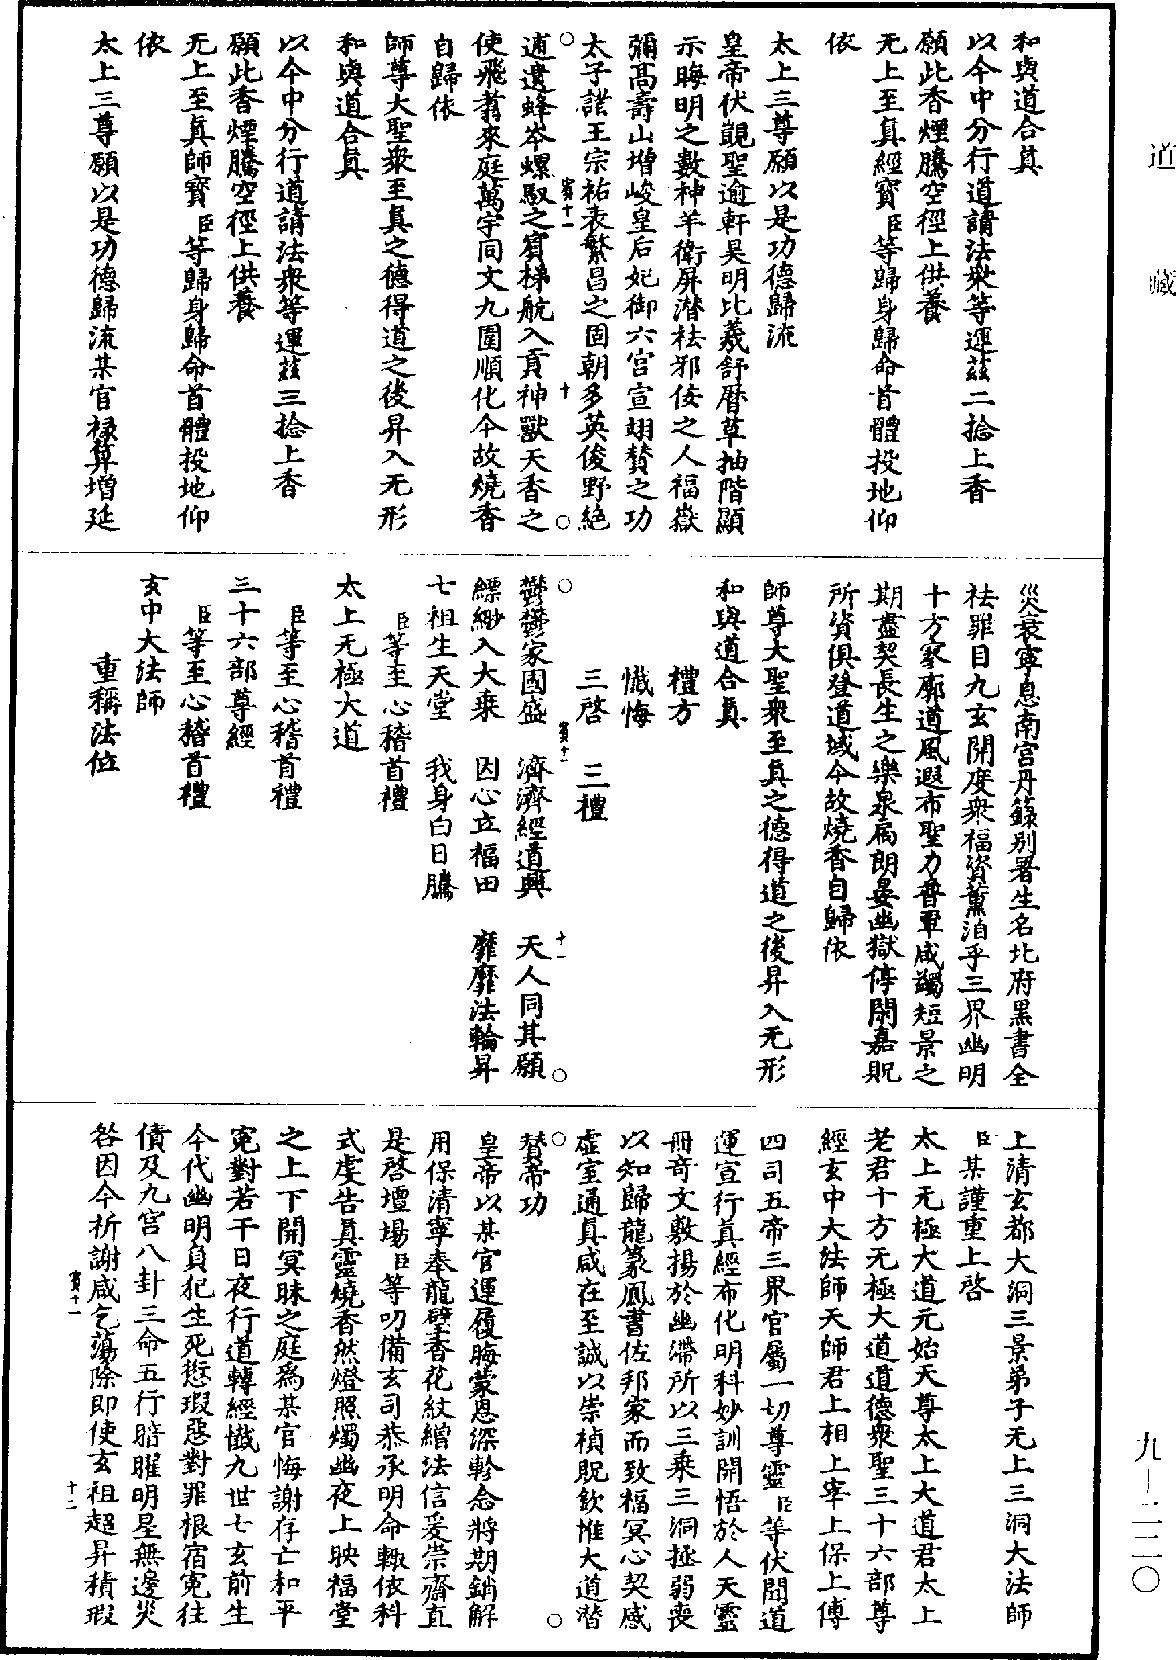 道藏
和與道合真
以今中分行道請法衆等運茲二捻上香
願此香煙騰空徑上供養
无上至真經寶臣等歸身歸命首體投地仰
依
太上三尊願以是功德歸流
皇帝伏覬聖逾軒昊明比羲舒曆草抽階顯
示晦明之數神羊衛屏潜祛邪佞之人福嶽
彌高壽山增峻皇后妃御六宮宣翊贊之功
太子諸王宗祐表繁昌之固朝多英俊野絶
賓十一
十
遺蜂岑螺馭之賓梯航入貢神獸天香之
使飛翥來庭萬宇同文九圍順化今故燒香
自歸依
師尊大聖衆至真之德得道之後昇入无形
和與道合真
以今中分行道請法衆等運茲三捻上香
願此香煙騰空徑上供養
无上至真師寶臣等歸身歸命首體投地仰
依
太上三尊願以是功德歸流某官禄算増延
災衰寧息南宮丹籙別署生名北府黑書全
祛罪目九玄開度衆福資薰洎乎三界幽明
十方寥廓道風遐布聖力普覃咸蠲短景之
期盡契長生之樂泉扃朗晏幽獄停閑嘉貺
所資俱登道域今故燒香自歸依
師尊大聖衆至真之德得道之後昇入无形
和與道合真
禮方
懺悔
三啓　三禮
賓十一
十一
鬱鬱家國盛　濟濟經道興　天人同其願
縹緲入大乘　因心立福田　靡靡法輪昇
七祖生天堂　我身白日騰
臣等至心稽首禮
太上无極大道
臣等至心稽首禮
三十六部尊經
臣等至心稽首禮
玄中大法師
重稱法位
上清玄都大洞三景弟子无上三洞大法師
臣某謹重上啓
太上无極大道元始天尊太上大道君太上
老君十方无極大道道德衆聖三十六部尊
經玄中大法師天師君上相上宰上保上傅
四司五帝三界官屬一切尊靈臣等伏聞道
運宣行真經布化明科妙訓開悟於人天靈
冊奇文敷揚於幽滯所以三乘三洞拯弱喪
以知歸龍篆鳳書佐邦家而致福冥心契感
虛室通真咸在至誠以崇楨貺欽惟大道潜
贊帝功
皇帝以某官運履晦蒙恩深軫念將期銷解
用保清寧奉龍璧香花紋繒法信爰崇齋直
是啓壇場臣等叨備玄司恭承明命輙依科
式虔告真靈燒香然燈照燭幽夜上映福堂
之上下開冥昧之庭爲某官悔謝存亡和平
寃對若干日夜行道轉經懺九世七玄前生
今代幽明負犯生死愆瑕惡對罪根宿寃往
債及九宮八卦三命五行暗曜明星無邊災
咎因今祈謝咸乞蕩除即使玄祖超昇積瑕
賓十一
十二
九—二二〇